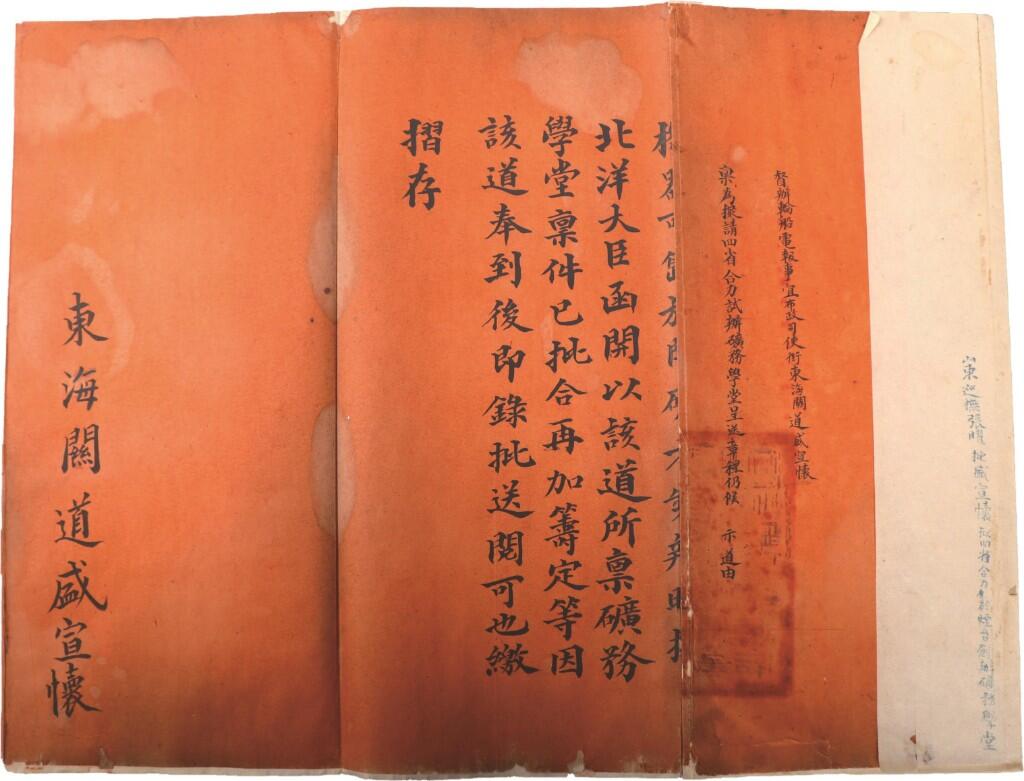 山東巡撫張曜批盛宣懷擬四省合力於煙台創辦礦務學堂
督辦輪船電報事宜布政司使銜東海關道盛宣懷
稟為擬請四省合力試辦礦務學堂呈送章程仍候 示遵由
北洋大臣函開以該道所稟礦務
學堂稟件已批合再加籌定等因
該道奉到後即錄批送閱可也繳
摺存
東海關道盛宣懷